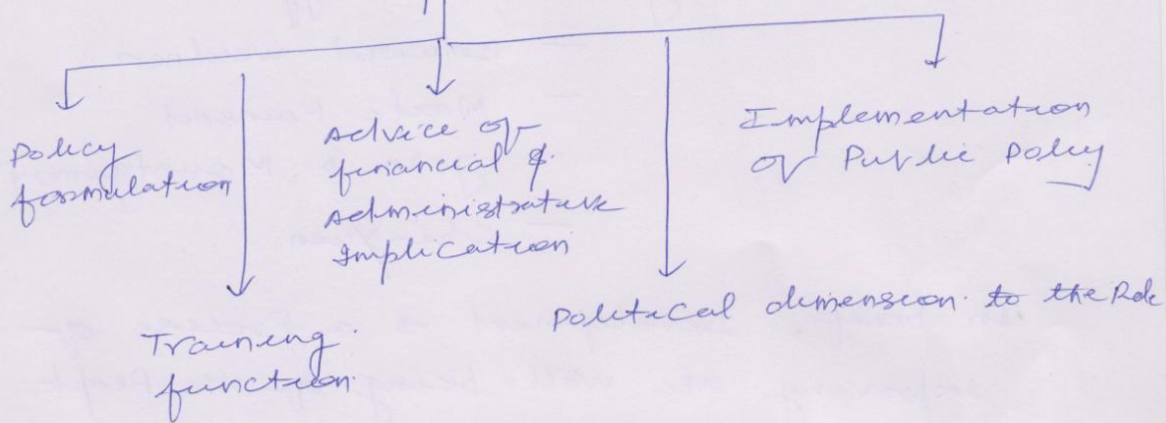 Policy
formulation
Training.
function.
Advice of
financial &
Administrative
Implication
Political dimension. to the Role
Implementation
of Public Policy